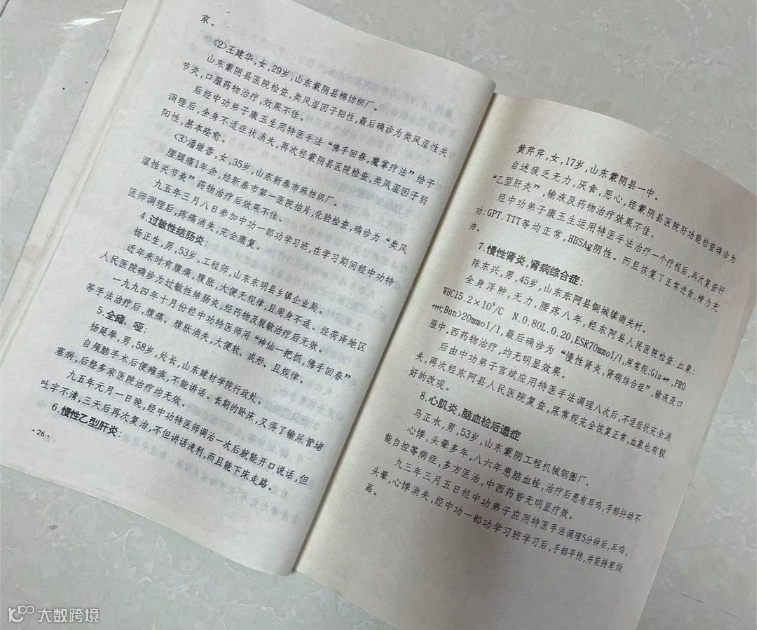 家。
〈2〉王建华，女，29岁，山东蒙阴县棉纺织厂。
山东蒙阴县医院检查，类风湿因子阳性，最后确诊为类风湿性关
节炎，口服药物治疗，效果不佳。
后经中功弟子康玉生用特医手法“佛手回春，魔掌疗法”给予
调理后，全身不适症状消失，再次经蒙阴县医院检查，类风湿因子弱
阳性，基本痊愈。
〈3〉潘继香，女，35岁，山东新泰市麻纺织厂。
腰腿痛1年余，经新泰市第一医院拍片，化验检查，确诊为“类风
湿性关节炎”药物治疗后效果不佳。
九五年三月八日参加中功一部功学习班，在学习期间经中功特
医师调理后，疼痛消失，完全康复。
4.过敏性结肠炎：
杨正生，男，53岁，工程师，山东东明县乡镇企业局。
近年来时有腹痛，腹胀，大便无规律，且周身不适。经菏泽地区
人民医院确诊为过敏性结肠炎，经药物及脱敏治疗后无效。
一九九四年十月份经中功特医师用“神仙一把抓，佛手回春”
等手法治疗后，腹痛、腹胀消失，大便软、成形、且规律。
5.全瘫、哑：
杨延华，男，58岁，处长，山东建材学院行政处。
自颅脑手术后便瘫痪，不能讲话。长期的卧床，又得了输尿管堵
塞病，后经多家医院治疗均无效。
九五年元月一日晚，经中功特医师调治一次后就能开口说话，但
吐字不清，三天后再次复治，不但讲话流利，而且能下床走路。
6.慢性乙型肝炎：
·26·
黄芹芹，女，17岁，山东蒙阴县一中。
自述疲乏无力，厌食，恶心，经蒙阴县医院肝功能检查确诊为
“乙型肝炎”，输液及药物治疗效果不佳。
经中功弟子康玉生运用特医手法治疗一个疗程后，再次复查肝
功：GPT、TTT等均正常，HBSAg阴性。而且恢复了正常进食，体力充
沛。
7.慢性肾炎，肾病综合症：
陈东兴，男，45岁，山东东阿县铜城镇南关村。
全身浮肿，无力，腰疼八年，经东阿县人民医院检查：血象：
WBC15.2×10⁹/C N.0.80L.0.20，ESR70mmol/l，尿常规：Glu，PRO
，Bun）20mmol/l，最后确诊为“慢性肾炎，肾病综合症”，输液及口
服中，西药物治疗，均无明显效果。
后由中功弟子宫斌应用特医手法调理八次后，不适症状完全消
失，再次经东阿县人民医院复查，尿常规完全恢复正常，血象也有较
好的改观。
8.心肌炎、脑血栓后遗症
马正水，男，53岁，山东蒙阴工程机械钢圈厂。
心悸，头晕多年，八六年患脑血栓，治疗后患有耳鸣，手部抖动不
能自控等病症，多方医治，中西药皆无明显疗效。
九三年三月五日经中功弟子应用特医手法调理5分钟后，耳鸣，
头晕，心悸消失，经中功一部功学习班学习后，手部平稳，并能持笔做
画。
大数跨境